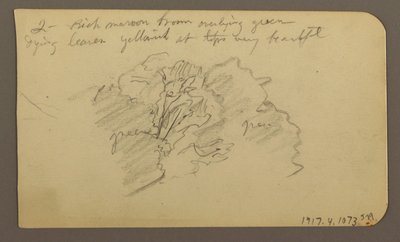 2 - Rich maroon brown overlying green
dying leaves yellowish at tips very beautiful
green
green
1917.4.1073